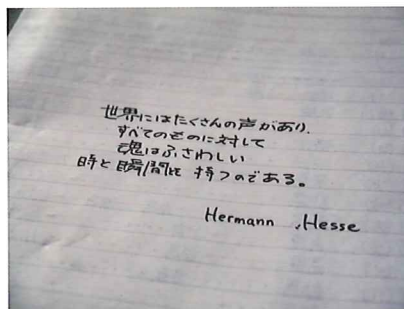 世界にはたくさんの声があり、
すべてのものに対して
魂はふさわしい
時と瞬間を 持つのである。
Hermann ,Hesse